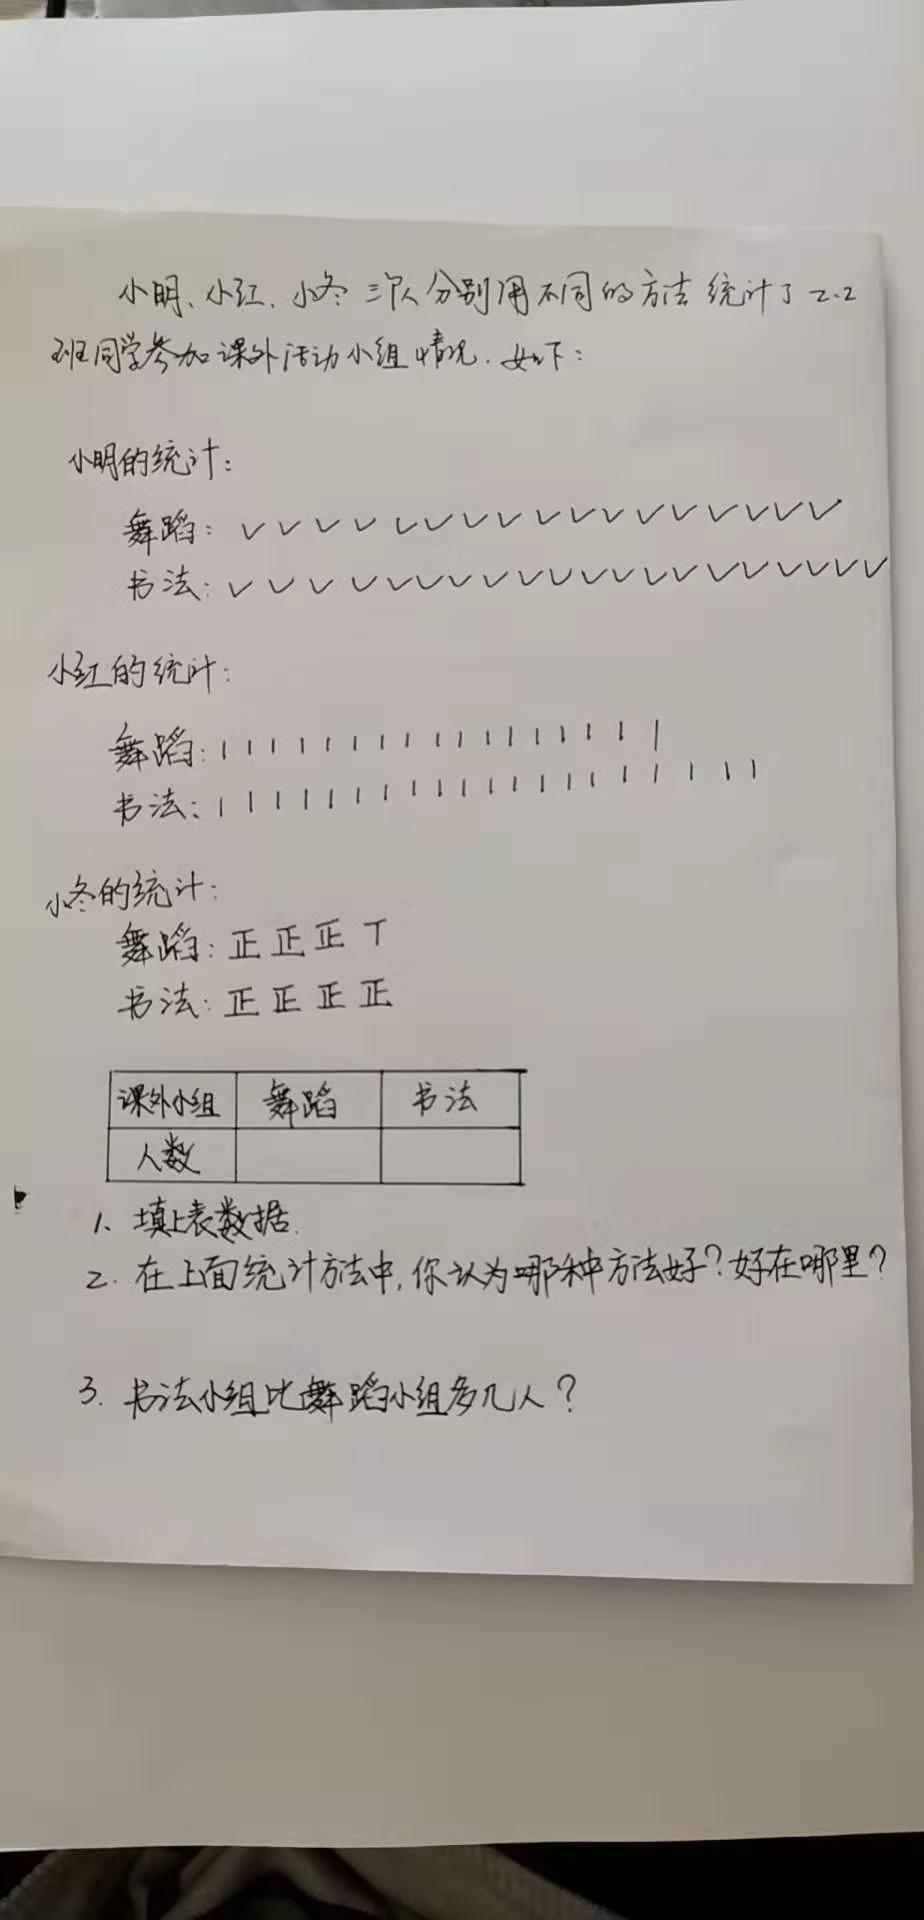 小明、小红、小冬三个人分别用不同的方法统计了二.2
班同学参加课外活动小组情况.如下:
小明的统计:
舞蹈: ✓✓✓✓✓✓✓✓✓✓✓✓✓✓✓✓✓
书法: ✓✓✓✓✓✓✓✓✓✓✓✓✓✓✓✓✓✓✓✓
小红的统计:
舞蹈: | | | | | | | | | | | | | | | | |
书法: | | | | | | | | | | | | | | | | | | | |
小冬的统计:
舞蹈: 正 正 正 丅
书法: 正 正 正 正
课外小组 舞蹈 书法
人数
1、填上表数据.
2. 在上面统计方法中,你认为哪种方法好?好在哪里?
3. 书法小组比舞蹈小组多几人?